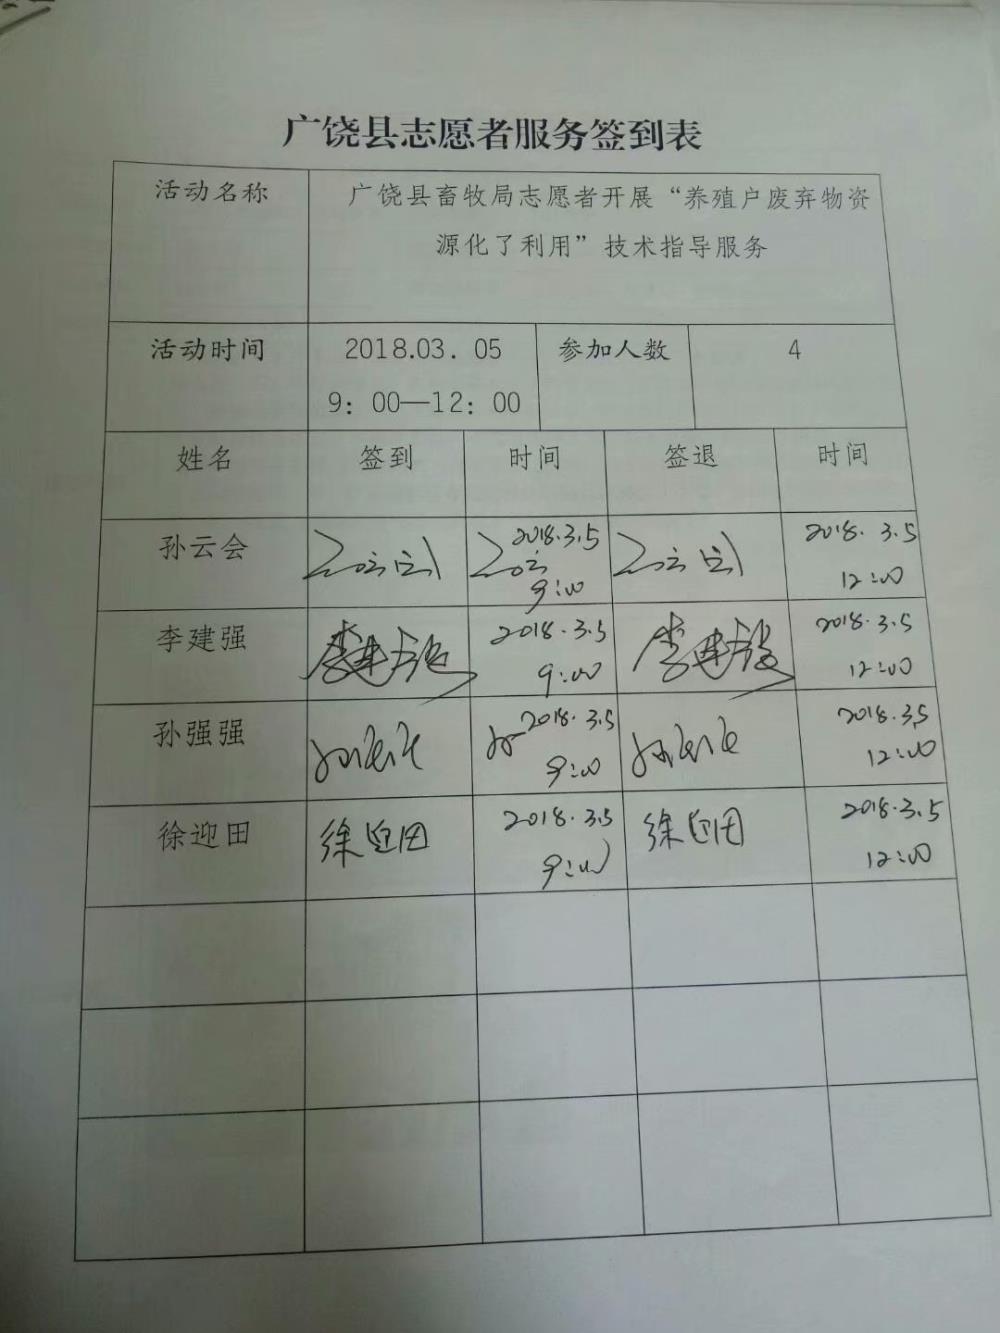 广饶县志愿者服务签到表
活动名称
广饶县畜牧局志愿者开展“养殖户废弃物资
源化了利用”技术指导服务
活动时间
2018.03. 05
9: 00—12: 00
参加人数
4
姓名 签到 时间 签退 时间
孙云会 2018.3.5 2018.3.5
9:00 12:00
李建强 李建强 2018.3.5 李建强 2018.3.5
9:00 12:00
孙强强 孙强强 2018.3.5 孙强强 2018.3.5
9:00 12:00
徐迎田 徐迎田 2018.3.5 徐迎田 2018.3.5
9:00 12:00